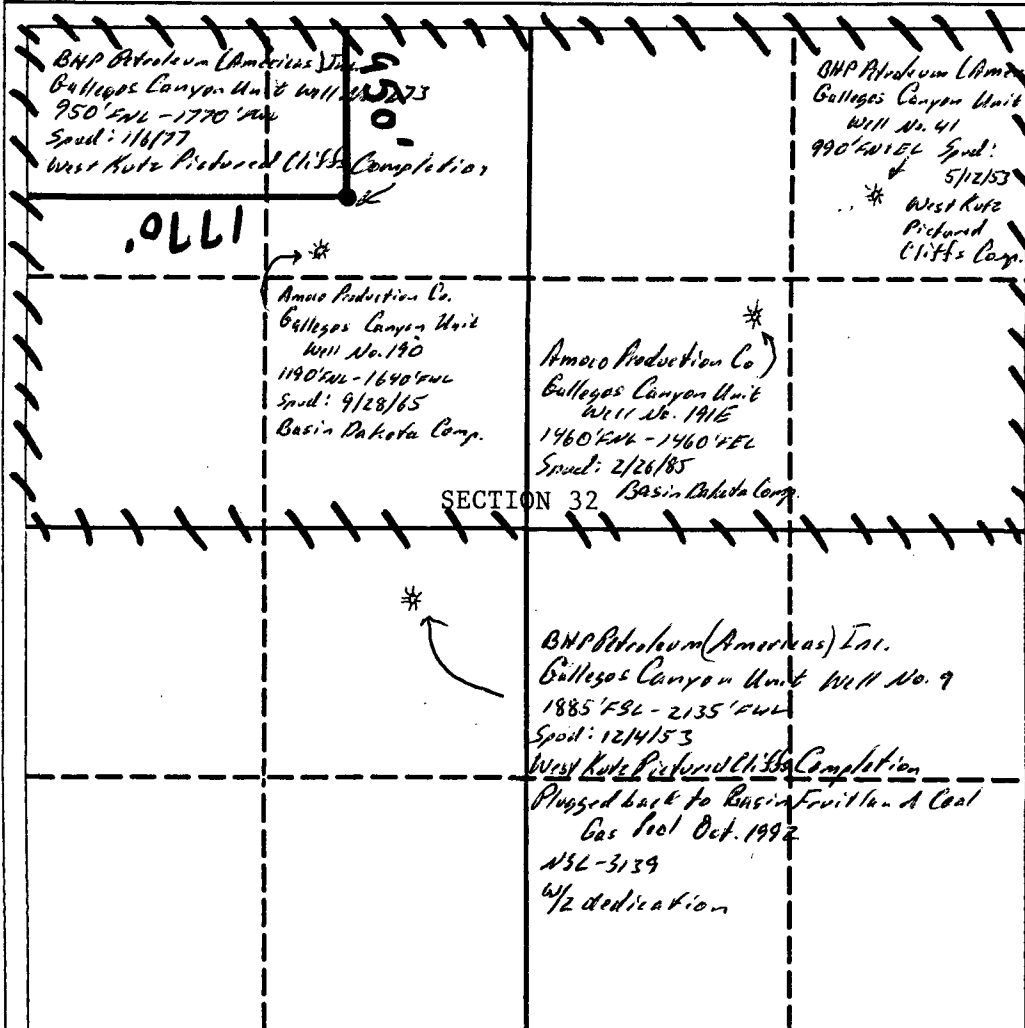 BHP Petroleum (Americas) Inc.
Gallegos Canyon Unit Well No. 273
950' FNL - 1770' FWL
Spud: 1/6/77
West Kutz Pictured Cliffs Completion
950'
1770'
BHP Petroleum (Amer
Gallegos Canyon Unit
Well No. 41
990' FN&EL Spud:
5/12/53
West Kutz
Pictured
Cliffs Comp.
Amoco Production Co.
Gallegos Canyon Unit
Well No. 190
1190' FNL - 1640' FWL
Spud: 9/28/65
Basin Dakota Comp.
Amoco Production Co
Gallegos Canyon Unit
Well No. 191E
1460' FNL - 1460' FEL
Spud: 2/26/85
Basin Dakota Comp.
SECTION 32
BHP Petroleum (Americas) Inc.
Gallegos Canyon Unit Well No. 9
1885' FSL - 2135' FWL
Spud: 12/4/53
West Kutz Pictured Cliffs Completion
Plugged back to Basin Fruitland Coal
Gas Pool Oct. 1992
NSL-3139
W/2 dedication